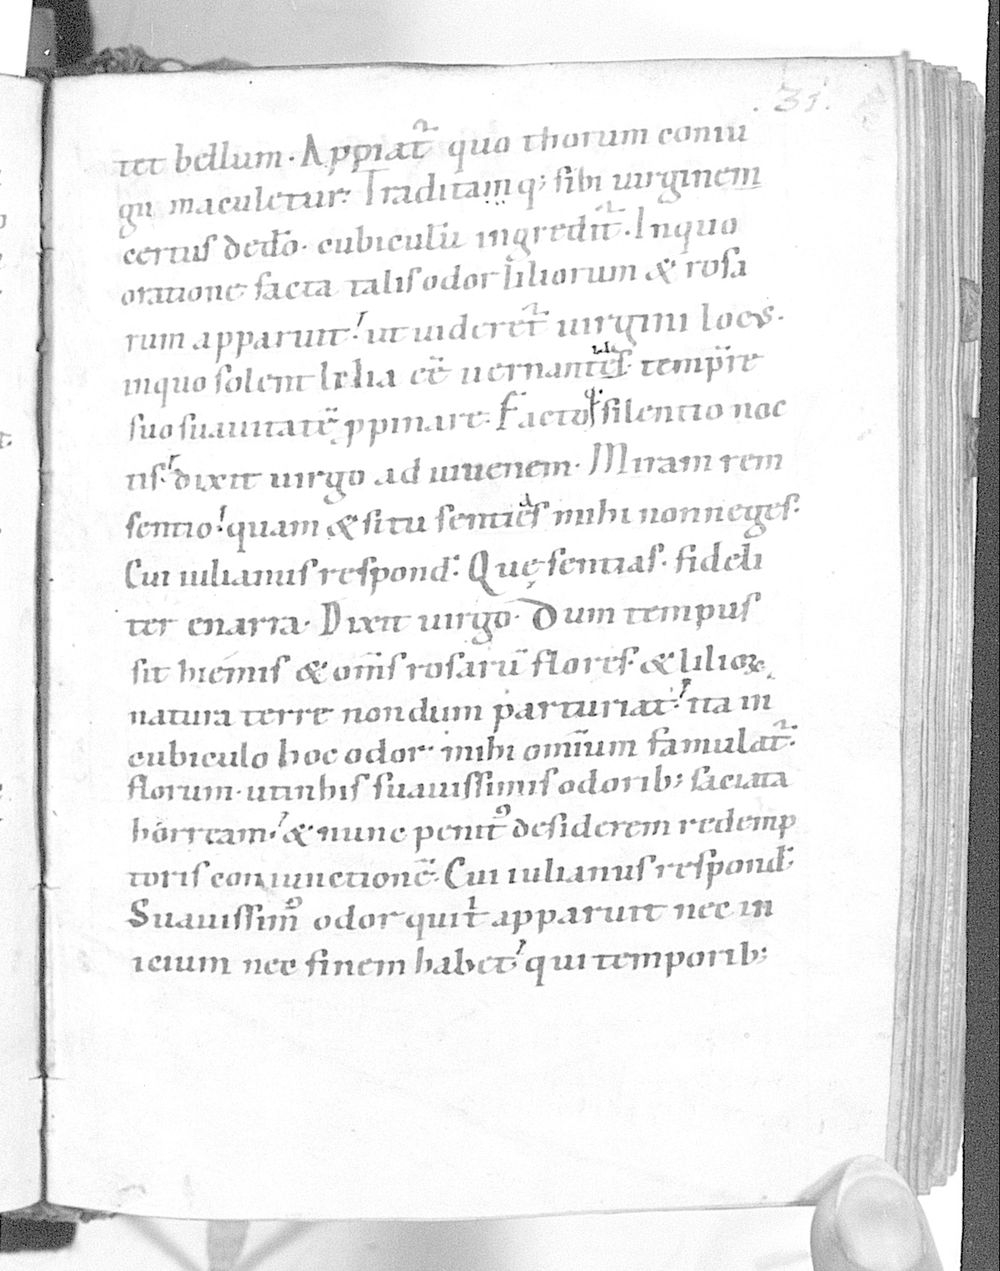 31.
tet bellum. Appiat᷒ quo thorum coniu
gii maculetur: Traditamq; sibi uirginem
certus dedo̅. cubiculu̅ ingredit᷒. Inquo
oratione facta talis odor liliorum & rosa
rum apparuit! ut uideret᷒ uirgini locus.
inquo solent lilia ee̅ uernantes. tempire
suo suauitate̅ ꝓpinare. Facto silentio noc
tis! dixit uirgo ad iuuenem. Miram rem
sentio! quam & si tu senties mihi nonneges.
Cui iulianus respond̅. Quę sentias. fideli
ter enarra. Dixit uirgo. Dum tempus
sit hiemis & om̅s rosaru̅ flores. & lilioꝝ
natura terre nondum parturiat! ita in
cubiculo hoc odor. mihi omnium famulat᷒.
florum. utinhis suauissimis odorib; saciata
horream! & nunc penit᷒ desiderem redemp
toris coniunctione̅. Cui iulianus respond̅.
Suauissim᷒ odor qui t̅ apparuit nec in
icium nec finem habet! qui temporib;